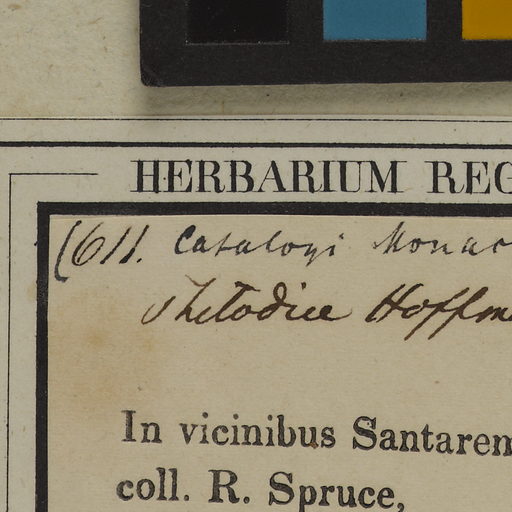 HERBARIUM REG
(611. Catalogi Monac
Thitodice Hoffm
In vicinibus Santarem
coll. R. Spruce,